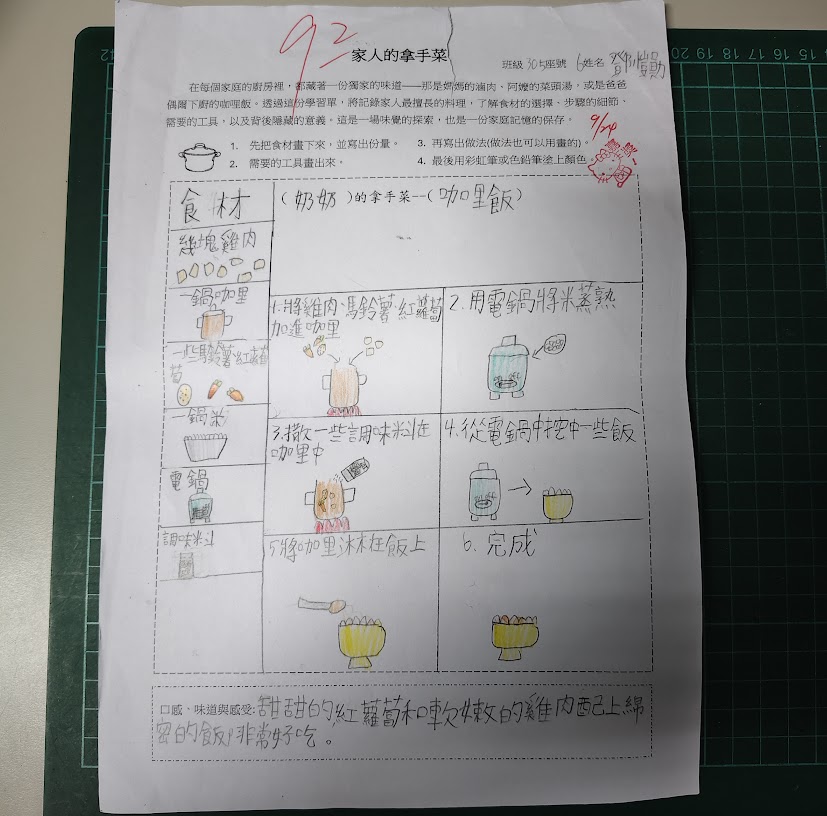 92
家人的拿手菜
班級 305 座號 6 姓名
在每個家庭的廚房裡，都藏著一份獨家的味道——那是媽媽的滷肉、阿嬤的菜頭湯，或是爸爸
偶爾下廚的咖哩飯。透過這份學習單，將記錄家人最擅長的料理，了解食材的選擇、步驟的細節、
需要的工具，以及背後隱藏的意義。這是一場味覺的探索，也是一份家庭記憶的保存。
9/24
1. 先把食材畫下來，並寫出份量。
2. 需要的工具畫出來。
3. 再寫出做法(做法也可以用畫的)。
4. 最後用彩虹筆或色鉛筆塗上顏色。
食材
(奶奶)的拿手菜--(咖里飯)
幾塊雞肉
一鍋咖里
一些馬鈴薯、紅蘿蔔
一鍋米
電鍋
調味料
1.將雞肉、馬鈴薯、紅蘿蔔
加進咖里
2.用電鍋將米蒸熟
3.撒一些調味料在
咖里中
4.從電鍋中挖中一些飯
5.將咖里淋在飯上
6.完成
口感、味道與感受:甜甜的紅蘿蔔和軟嫩的雞肉配上綿
密的飯，非常好吃。